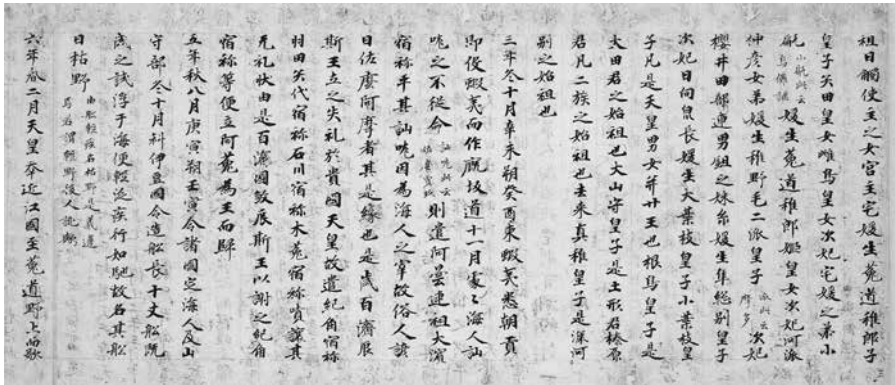 祖日觸使主之女宮主宅媛生菟道稚郎子
皇子矢田皇女雌鳥皇女次妃宅媛之弟小
甂小甂此云烏儺謎媛生菟道稚郎姫皇女次妃河派
仲彦女弟媛生稚野毛二派皇子派此云摩多次妃
櫻井田部連男鉏之妹糸媛生隼総別皇子
次妃日向泉長媛生大葉枝皇子小葉枝皇
子凡是天皇男女并廿王也根鳥皇子是
大田君之始祖也大山守皇子是土形君榛原
君凡二族之始祖也去来真稚皇子是深河
別之始祖也
三年冬十月辛未朔癸酉東蝦夷悉朝貢
即役蝦夷而作厩坂道十一月處々海人訕
哤之不従命訕哤此云佐麼賣玖則遣阿曇連祖大濱
宿祢平其訕哤因為海人之宰故俗人諺
曰佐麼阿摩者其是縁也是歳百濟辰
斯王立之失礼於貴國天皇故遣紀角宿祢
羽田矢代宿祢石川宿祢木菟宿祢嘖譲其
无礼状由是百濟國敦辰斯王以謝之紀角
宿祢等便立阿菟為王而歸
五年秋八月庚寅朔壬寅令諸國定海人及山
守部冬十月科伊豆國令造船長十丈船既
成之試浮于海便軽泛疾行如馳故名其船
曰枯野由船軽疾名枯野是義違焉若謂軽野後人訛歟
六年春二月天皇幸近江國至菟道野上而歌